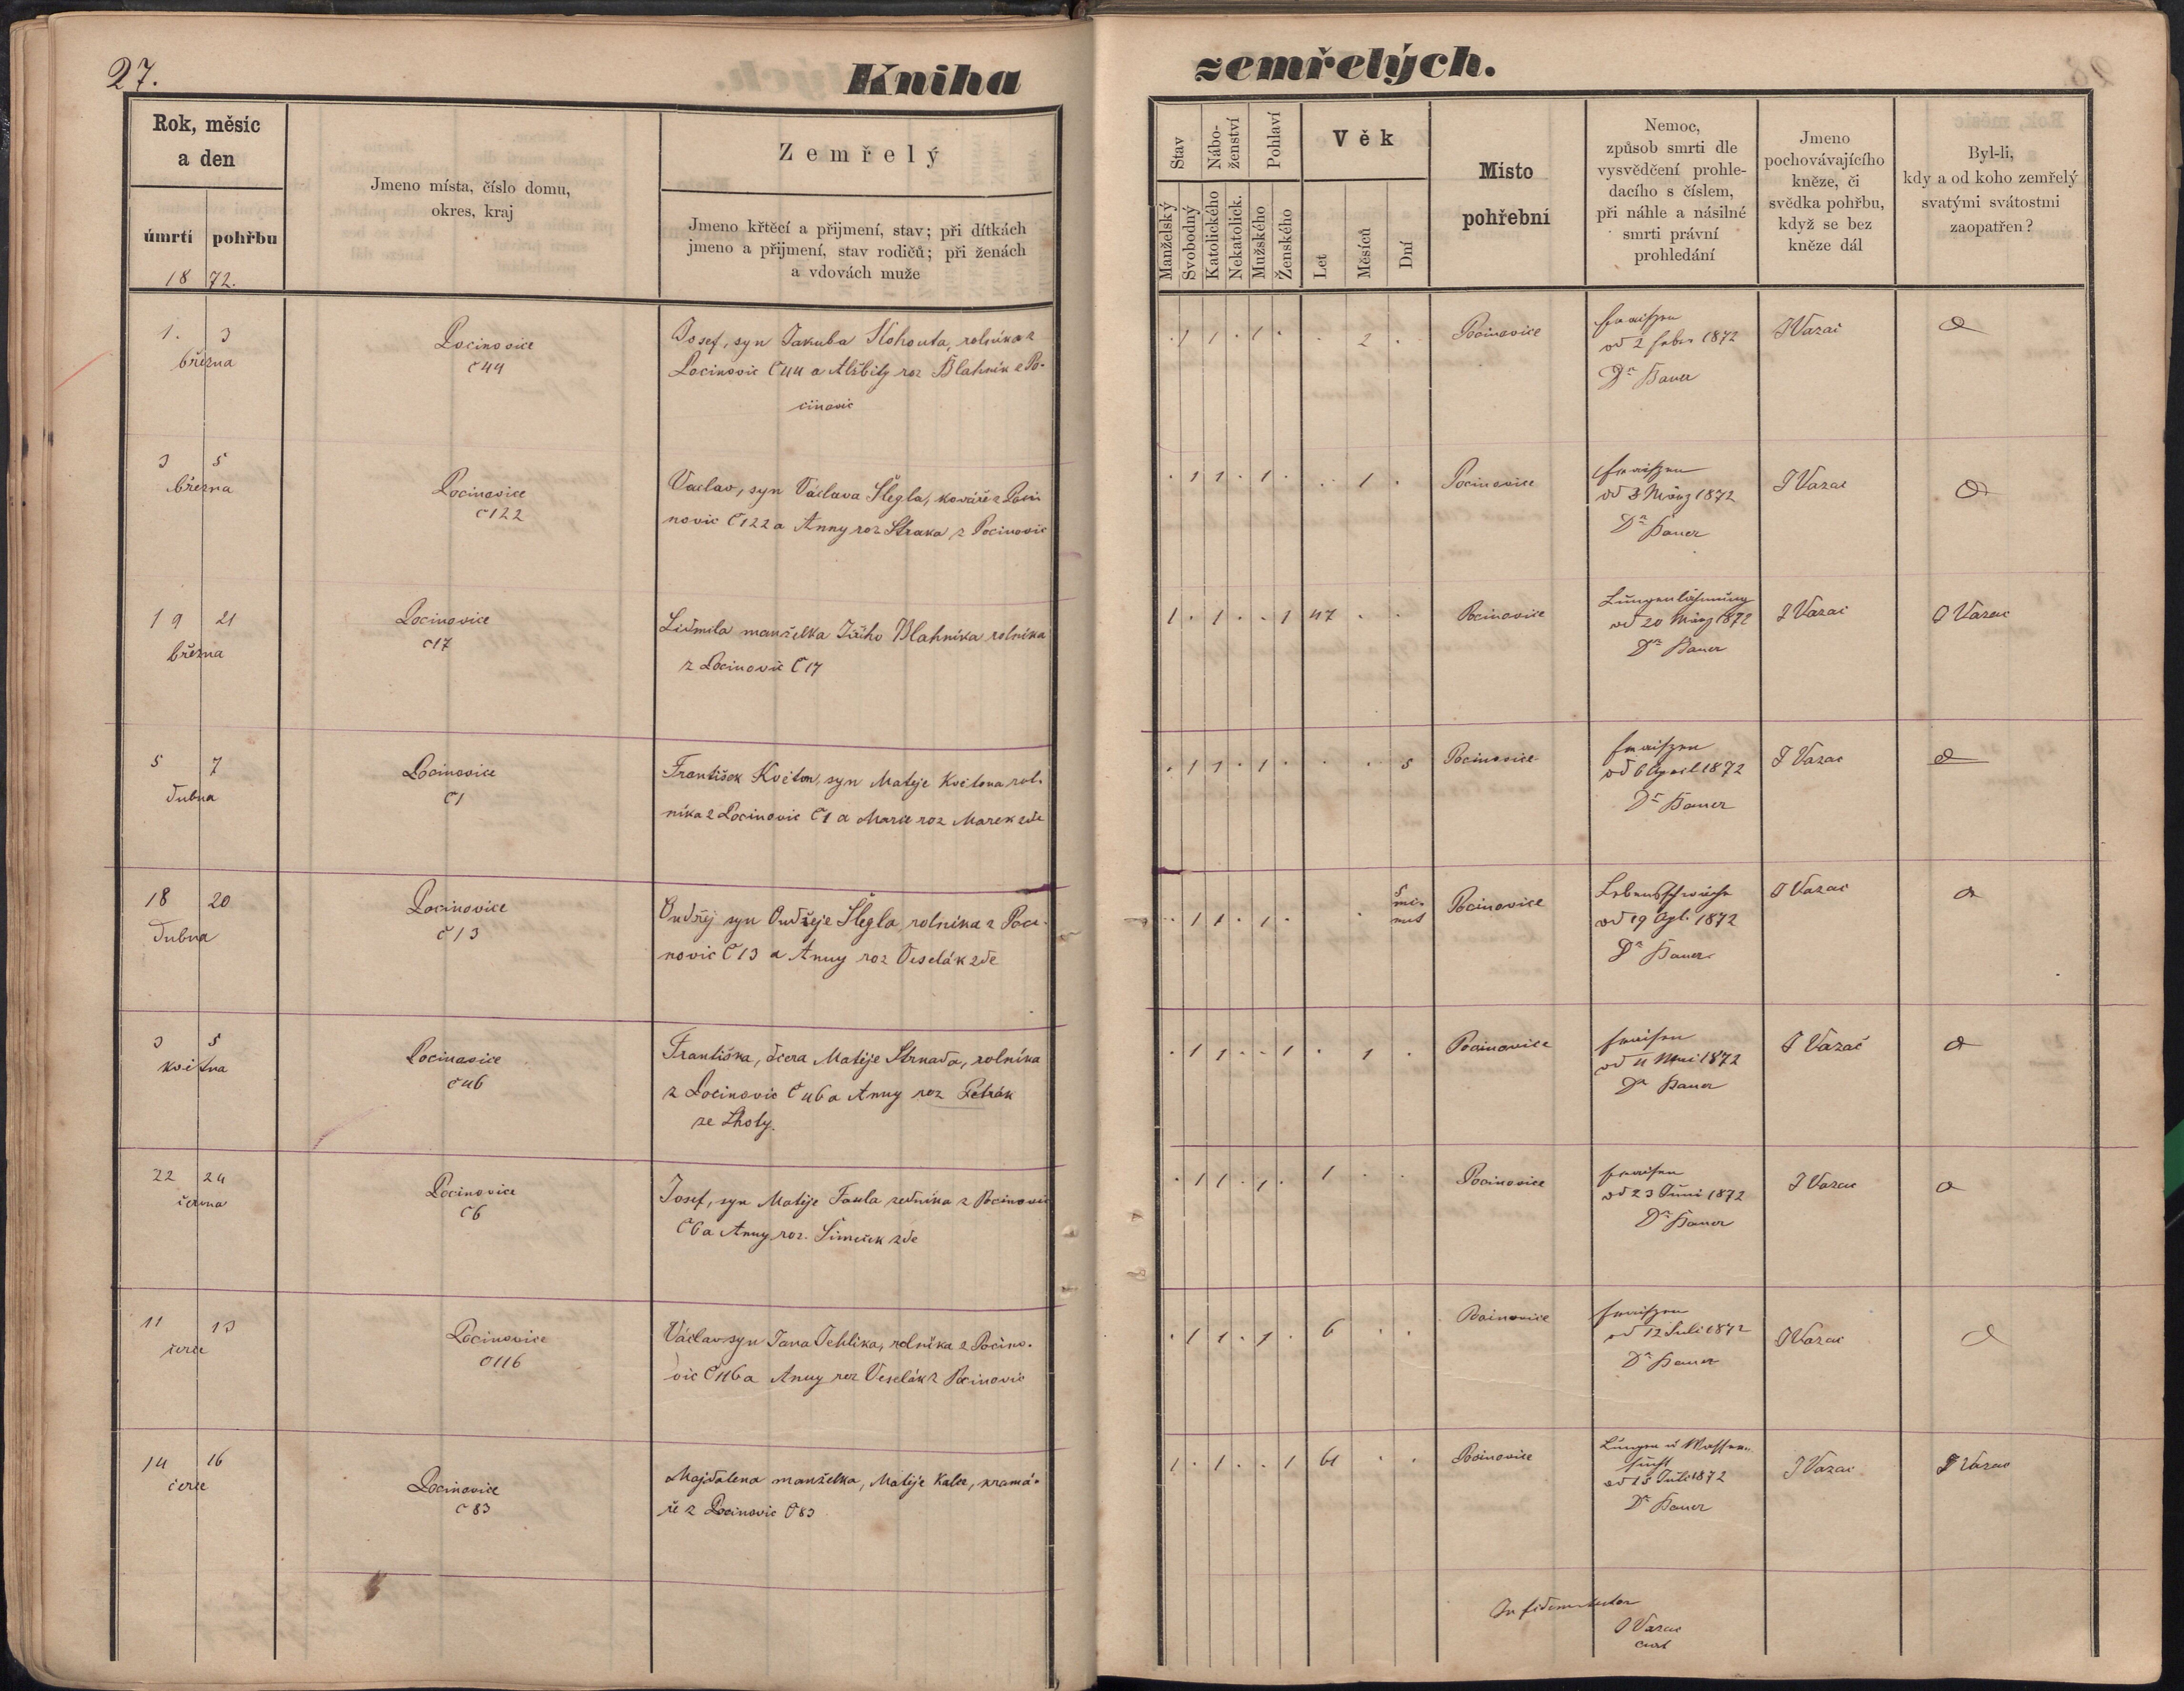 27.
Kniha zemřelých.
Rok, měsíc
a den
úmrtí pohřbu
18 72.
Jmeno místa, číslo domu,
okres, kraj
Zemřelý
Jmeno křtěcí a přijmení, stav; při dítkách
jmeno a přijmení, stav rodičů; při ženách
a vdovách muže
Stav
Nábo-
ženství
Pohlaví
Manželský
Svobodný
Katolického
Nekatolick.
Mužského
Ženského
Věk
Let
Měsíců
Dní
Místo
pohřební
Nemoc,
způsob smrti dle
vysvědčení prohle-
dacího s číslem,
při náhle a násilné
smrti právní
prohledání
Jmeno
pochovávajícího
kněze, či
svědka pohřbu,
když se bez
kněze dál
Byl-li,
kdy a od koho zemřelý
svatými svátostmi
zaopatřen?
1. 3
března
Pocinovice
č 44
Josef, syn Jakuba Kohouta, rolníka z
Pocinovic č 44 a Alžbity roz Blahník z Po-
cinovic
. 1 1 . 1 . . 2 .
Pocinovice
fraiszen
od 2 feber 1872
Dr Bauer
J Vazac
3 5
března
Pocinovice
č 122
Vaclav, syn Václava Šlegla, kováře z Poci
novic č 122 a Anny roz Straka z Pocinovic
. 1 1 . 1 . . 1 .
Pocinovice
fraiszen
od 3 März 1872
Dr Bauer
J Vazac
19 21
března
Pocinovice
č 17
Lidmila manželka Jiřího Blahníka rolníka
z Pocinovic č 17
1 . 1 . . 1 47 . .
Pocinovice
Lungenlähmung
od 20 März 1872
Dr Bauer
J Vazac
J Vazac
5 7
dubna
Pocinovice
č 1
František Květon, syn Matěje Květona rol-
níka z Pocinovic č 1 a Marie roz Marek zde
. 1 1 . 1 . . . 5
Pocinovice
fraiszen
od 6 April 1872
Dr Bauer
J Vazac
18 20
dubna
Pocinovice
č 13
Ondřej syn Ondřeje Šlegla rolníka z Poci-
novic č 13 a Anny roz Veselák zde
. 1 1 . 1 . . 5
mi-
nut
Pocinovice
Lebensschwäche
od 19 Apl. 1872
Dr Bauer
J Vazac
3 5
května
Pocinovice
č 46
Františka, dcera Matěje Strnada, rolníka
z Pocinovic č 46 a Anny roz Petrák
ze Lhoty.
. 1 1 . . 1 . 1 .
Pocinovice
fraisen
od 4 Mai 1872
Dr Bauer
J Vazač
22 24
června
Pocinovice
č 6
Josef, syn Matěje Faula zedníka z Pocinovic
č 6 a Anny roz. Šimeček zde
. 1 1 . 1 . 1 . .
Pocinovice
fraisen
od 23 Juni 1872
Dr Bauer
J Vazac
11 13
červce
Pocinovice
č 116
Václav syn Jana Jehlíka, rolníka z Pocino-
vic č 116 a Anny roz Veselák z Pocinovic
. 1 1 . 1 . 6 . .
Pocinovice
fraiszen
od 12 Juli 1872
Dr Bauer
J Vazac
14 16
červce
Pocinovice
č 83
Majdalena manželka, Matěje Kalce, kramá-
ře z Pocinovic č 83
1 . 1 . . 1 61 . .
Pocinovice
Lungen u Wasser-
sucht
od 15 Juli 1872
Dr Bauer
J Vazac
J Vazac
In fidem
J Vazac